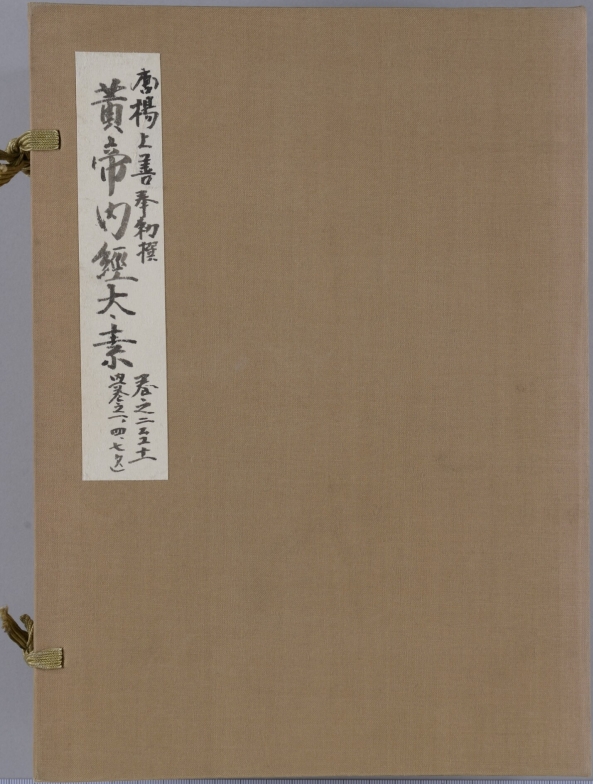 唐楊上善奉勅撰
黄帝内經太素
巻之二ヨリ十一
内巻之一、四、七欠